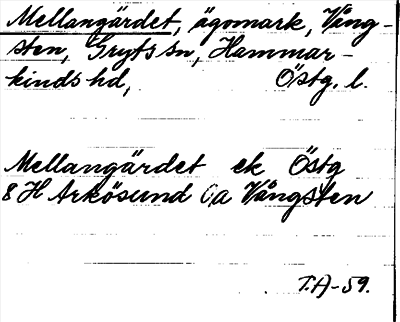 Mellangärdet, ägomark, Vång-
sten, Gryts sn, Hammar-
kinds hd, Östg. l.
Mellangärdet ek Östg
8 H Arkösund C,a Vångsten
T.A-59.